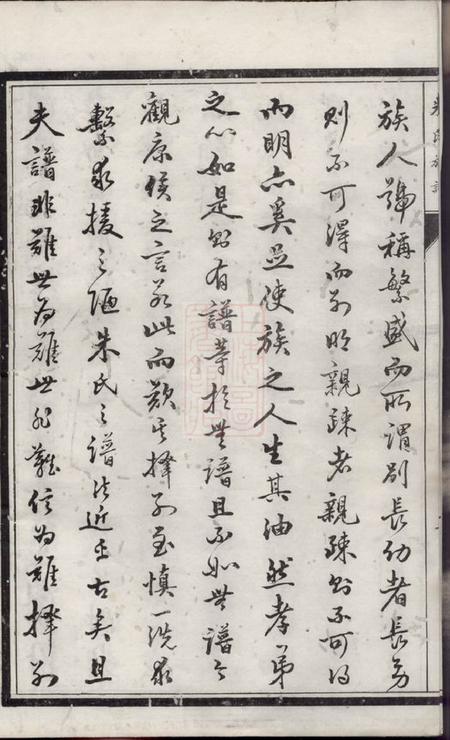 族人號稱繁盛而所謂別長幼者長幼
則不可得而別明親疎者親疎則不可得
而明亦奚足使族之人生其油然孝弟
之心如是則有譜等於無譜且不如無譜今
觀原侯之言若此而歎其擇別至慎一洗
繫援之陋朱氏之譜法近乎古矣且
夫譜非難世為難世非難信為難擇別